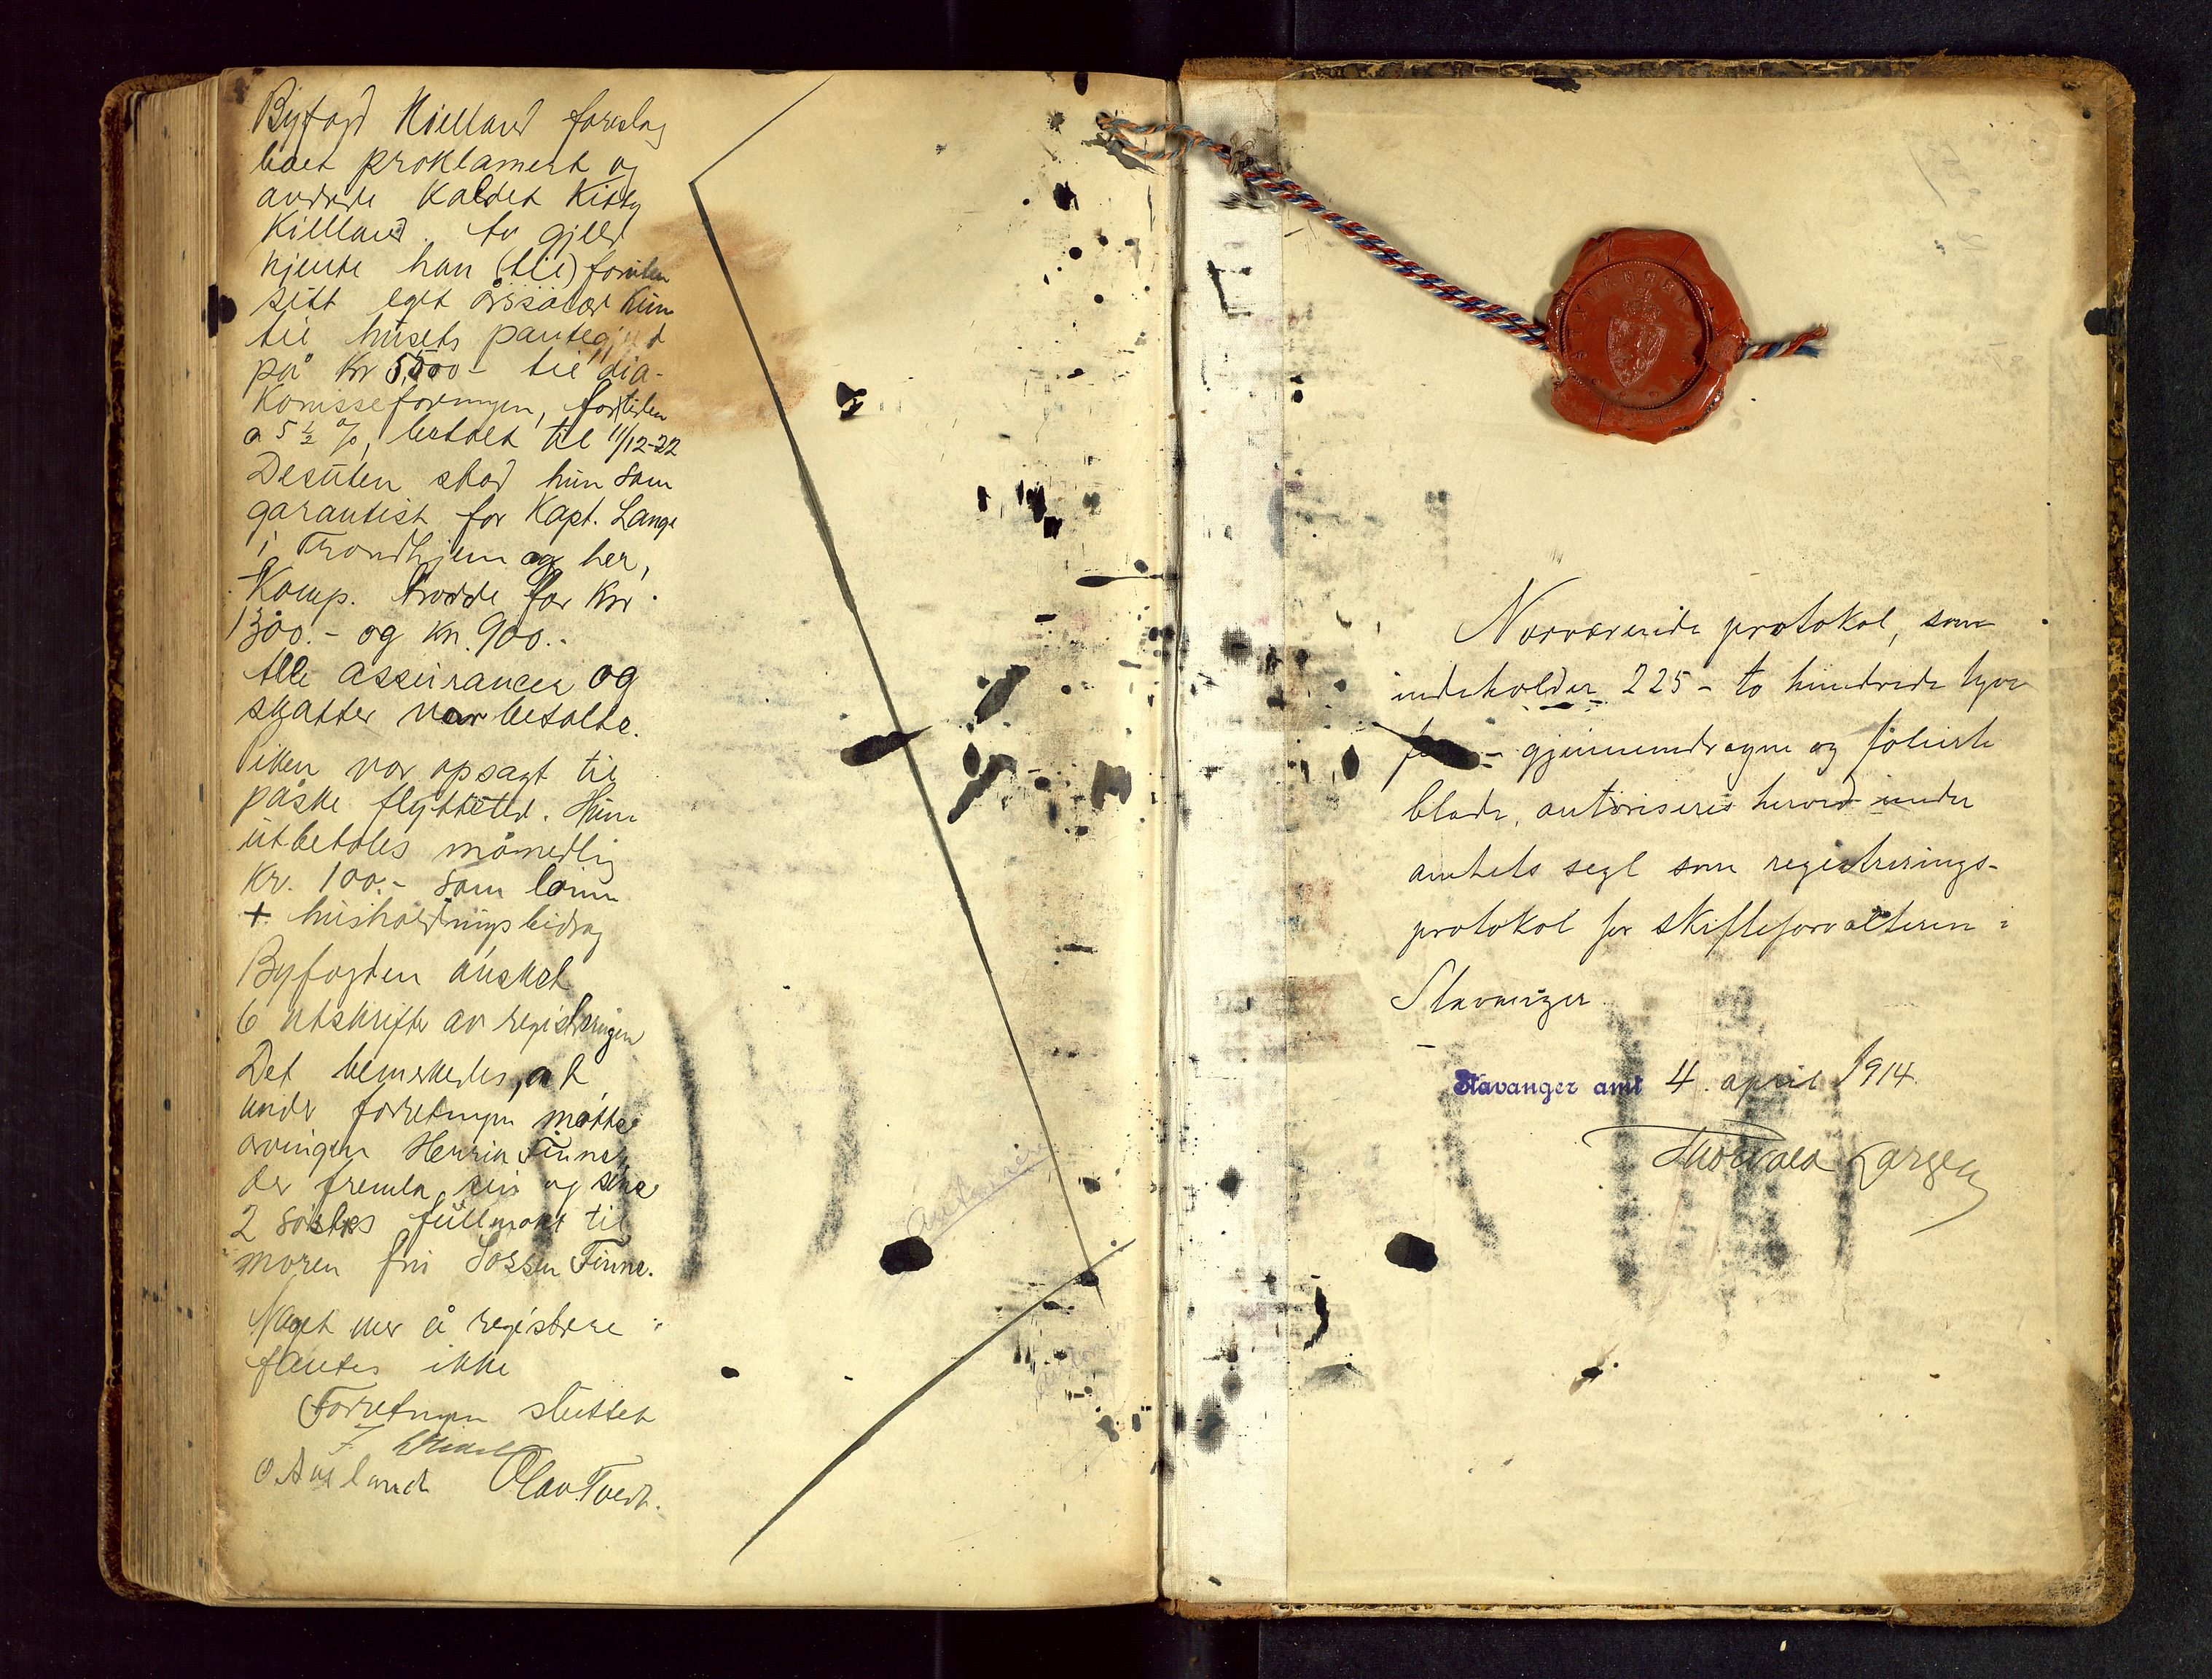 Byfogd Kielland foreslog
boet proklamert og
andrede kaldet Kitty
Kielland. Av gjæld
kjente han (til) foruten
sitt eget årssalær kun
til husets pantegjeld
på kr 5,500 - til dia-
konisseforeningen, fortiden
a 5 ½ %, betalt til 11/12-22
Desuten stod hun som
garantist for Kapt. Lange
i Trondhjem og her,
Komp. trodde for kr
1300.- og kr. 900.-
Alle assurancer og
skatter var betalte.
Piken var opsagt til
påske flyttetid. Hun
utbetales månedlig
Kr. 100.- som lønn
+ husholdningsbidrag
Byfogden ønsket
6 utskrifter av registreringen
Det bemerkedes, at
under forretningen møtte
arvingen Henrik Finne,
der fremla sin og sine
2 søstres fullmakt til
moren fru Sossen Finne.
Noget mer å registrere
fantes ikke
Forretningen sluttet
O. Ausland Olav Tvedt.
Nærværende protokol, som
indeholder 225 - to hundrede tyve
fem - gjennemdragne og folierte
blade, autoriseres herved under
amtets segl som registrerings-
protokol for skifteforvalteren i
Stavanger
Stavanger amt 4. april 1914.
Thorvald Larsen